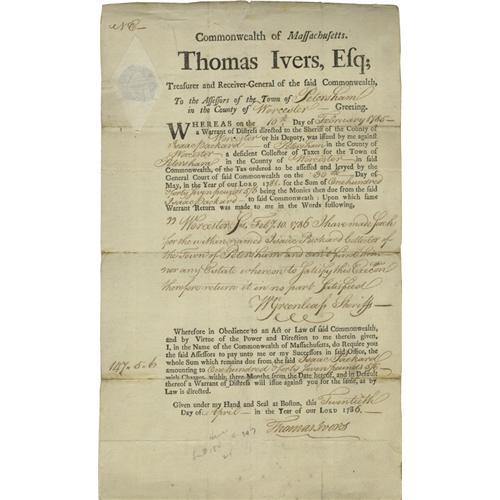 No
Commonwealth of Massachusetts.
Thomas Ivers, Esq;
Treasurer and Receiver-General of the said Commonwealth,
To the Assessors of the Town of Petersham
in the County of Worcester — Greeting.
WHEREAS on the 10th Day of February 1785
a Warrant of Distress directed to the Sheriff of the County of
Worcester or his Deputy, was issued by me against
Isaac Packard of Petersham in the County of
Worcester, a deficient Collector of Taxes for the Town of
Petersham in the County of Worcester in said
Commonwealth, of the Tax ordered to be assessed and levyed by the
General Court of said Commonwealth on the Day of
May, in the Year of our LORD 1781 for the Sum of One hundred
forty seven pounds 5/6 being the Monies then due from the said
Isaac Packard to said Commonwealth: Upon which same
Warrant Return was made to me in the Words following,
Worcester Ss, Feby. 10. 1786 I have made Search
for the within named Isaac Packard Collector of
the Town of Petersham and can't find him
nor any Estate whereon to Satisfy this Execon
therefore return it in no part Satisfied
W Greenleaf Sheriff
Wherefore in Obedience to an Act or Law of said Commonwealth,
and by Virtue of the Power and Direction to me therein given,
I, in the Name of the Commonwealth of Massachusetts, do Require you
the said Assessors to pay unto me or my Successors in said Office, the
whole Sum which remains due from the said Isaac Packard
147.5.6 amounting to One hundred & forty seven pounds 5/6
with Charges, within three Months from the Date hereof, and in Default
thereof a Warrant of Distress will issue against you for the same, as by
Law is directed.
Given under my Hand and Seal at Boston, this Twentieth
Day of April in the Year of our LORD 1786.
Thomas Ivers